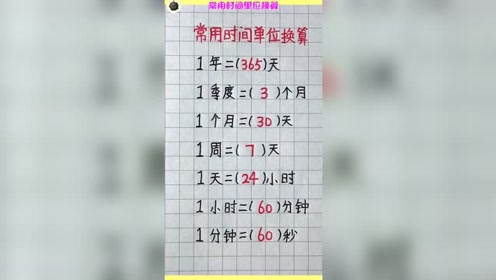 常用时间单位换算
常用时间单位换算
1年=(365)天
1季度=(3)个月
1个月=(30)天
1周=(7)天
1天=(24)小时
1小时=(60)分钟
1分钟=(60)秒